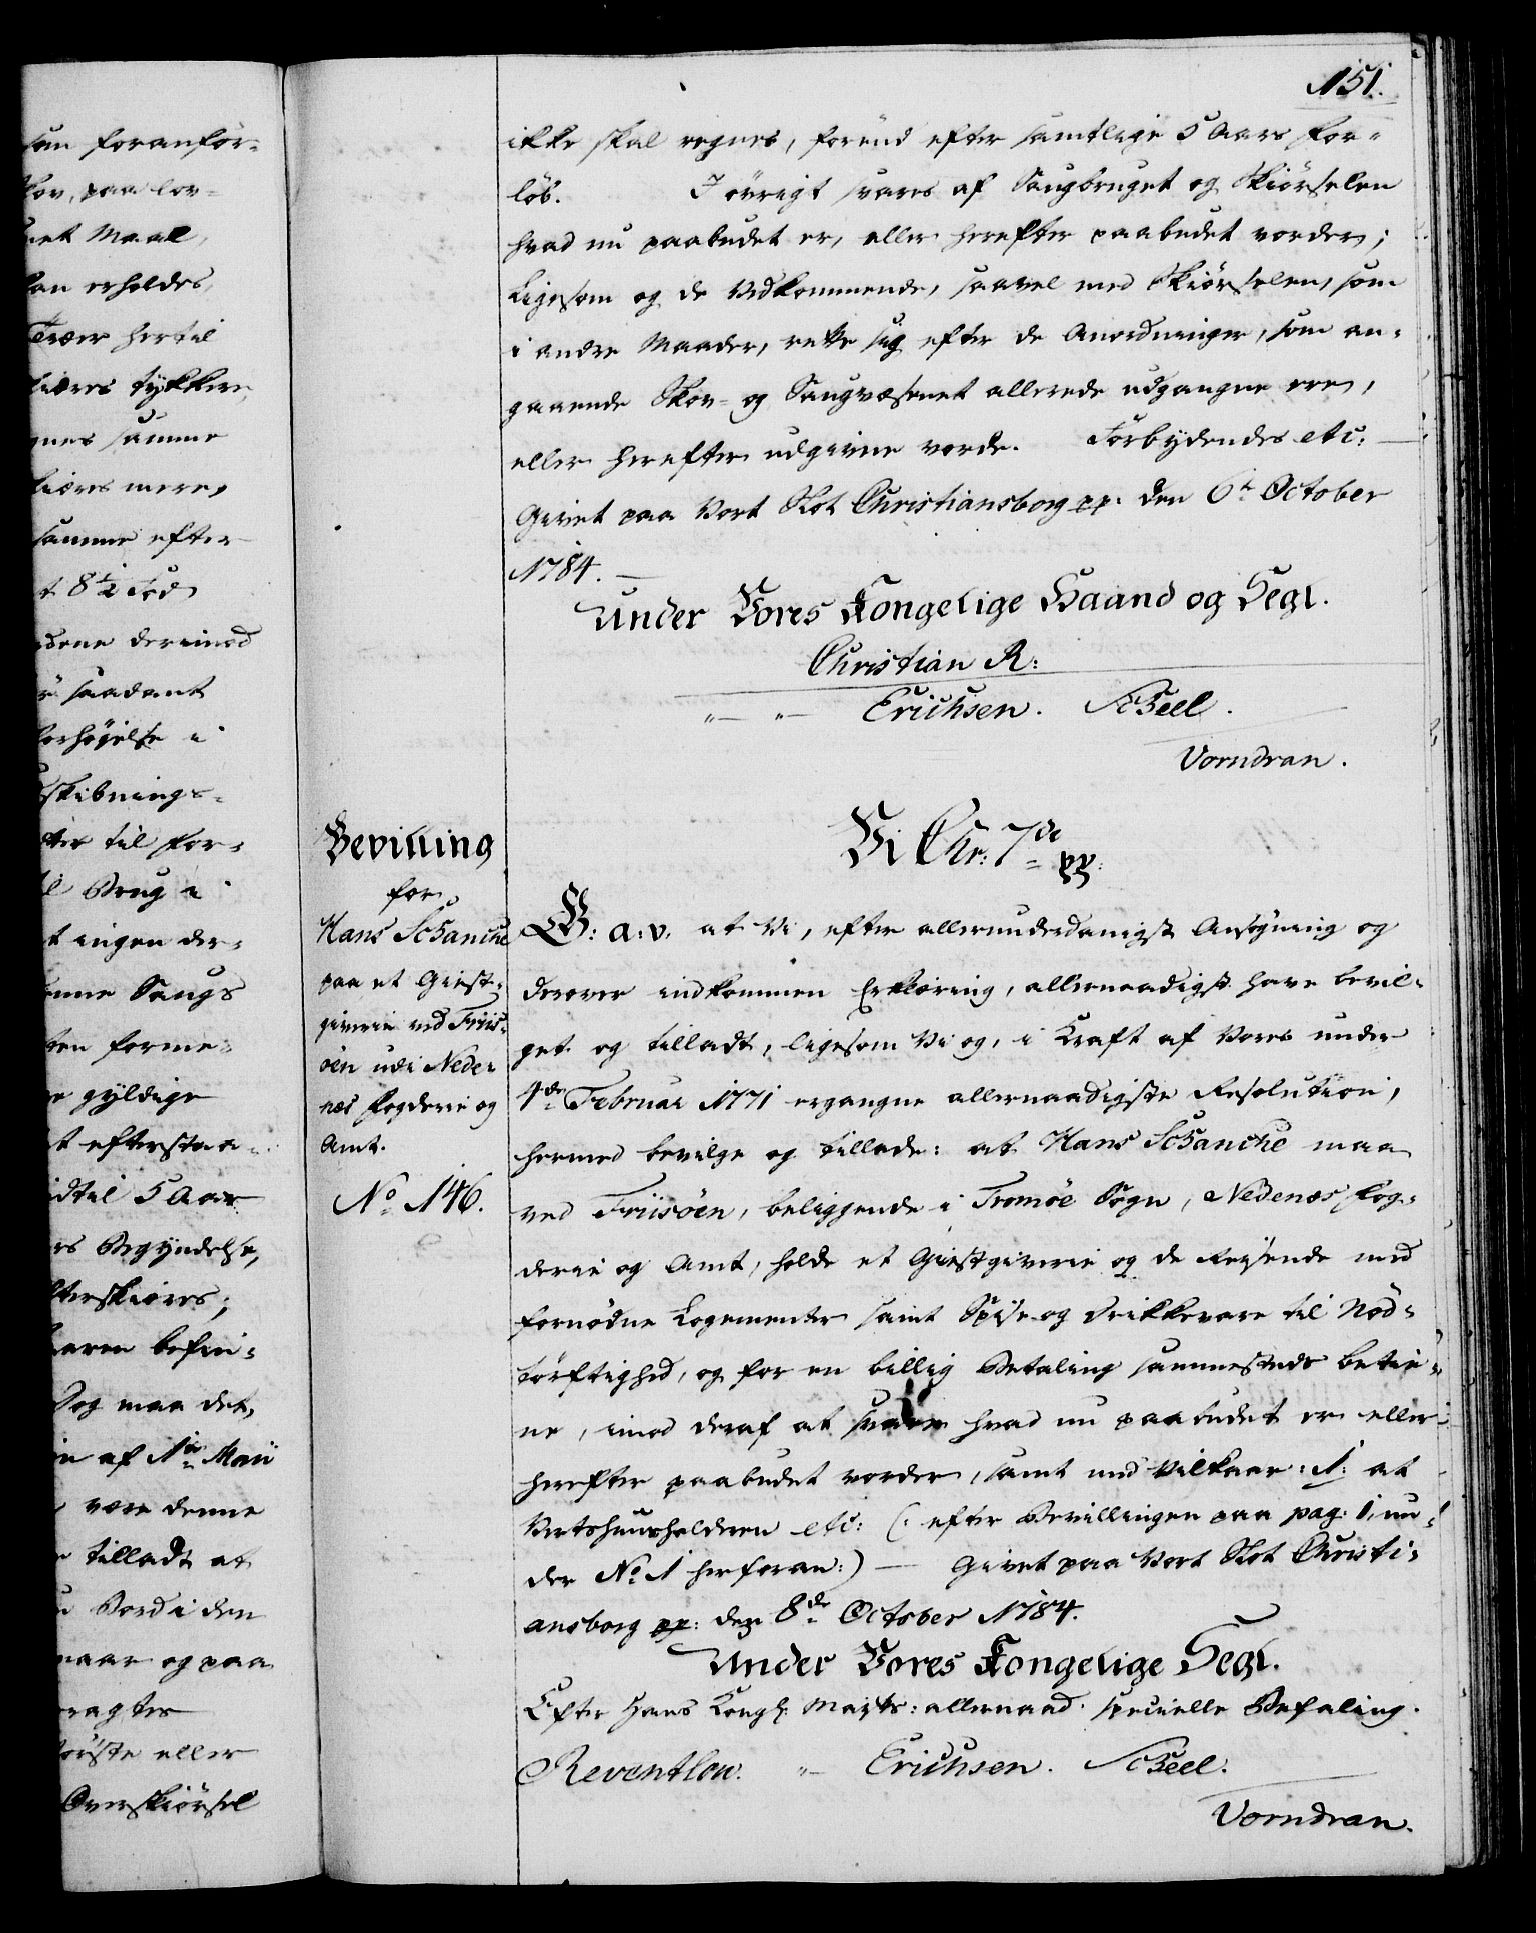 151.
ikke skal regnes, førend efter samtlige 5 Aars for-
løb. I øvrigt svares af Saugbruget og Skiørselen
hvad nu paabudet er, eller herefter paabudet vorder;
Ligesom og de Vedkommende, saavel med Skiørselen, som
i andre Maader, rette sig efter de Anordninger, som an-
gaaende Skov- og Saugvæsenet allerede udgangne ere,
eller herefter udgivne vorde. Forbydendes etc:
Givet paa Vort Slot Christiansborg pp. den 6te October
1784.
Under Vores Kongelige Haand og Segl.
Christian R:
" " Erichsen. Scheel.
Vorndran.
Bevilling
for
Hans Schanche
paa et Giest-
giverie ved Friis-
öen udi Nede-
næs Fogderie og
Amt.
No 146.
Vi Chr: 7de pp:
G: a: v. at Vi, efter allerunderdanigst Ansøgning og
derover indkommen Erklæring, allernaadigst have bevil-
get og tilladt, ligesom Vi og, i Kraft af Vores under
4de Februar 1771 ergangne allernaadigste Resolution,
hermed bevilge og tillade: at Hans Schanche maa
ved Friisöen, beliggende i Tromöe Sogn, Nedenæs Fog-
derie og Amt, holde et Giestgiverie og de Reysende med
fornødne Logementer samt Spise- og Drikkevare til Nød-
tørftighed, og for en billig Betaling sammesteds betie-
ne, imod deraf at svare hvad nu paabudet er eller
herefter paabudet vorder, samt med Vilkaar: 1: at
Vertshuusholderen etc: (: efter Bevillingen paa pag: 1, un-
der No 1 herforan:) — Givet paa Vort Slot Christi-
ansborg pp: den 8de October 1784.
Under Vores Kongelige Segl.
Efter Hans Kongl: Mayts: allernaad. specielle Befaling.
Reventlow. " Erichsen. Scheel.
Vorndran.